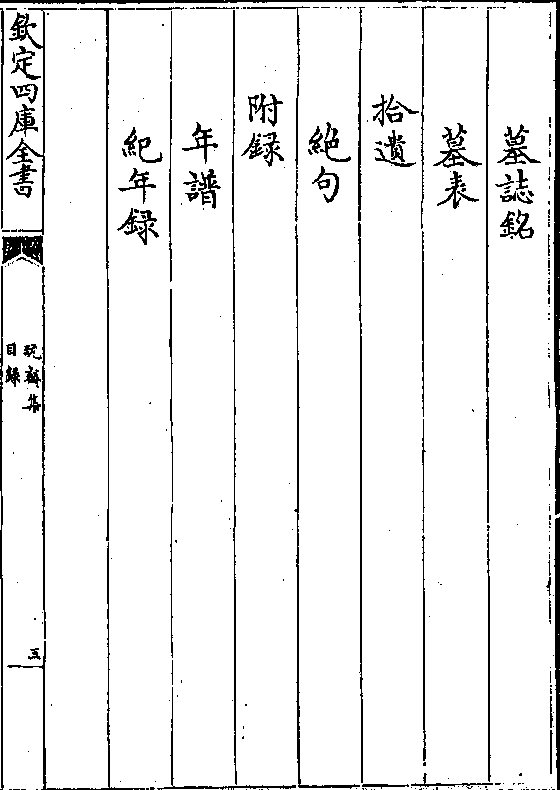 墓誌銘
墓表
拾遺
絶句
附録
年譜
紀年録
欽定四庫全書
玩齋集
目録
五